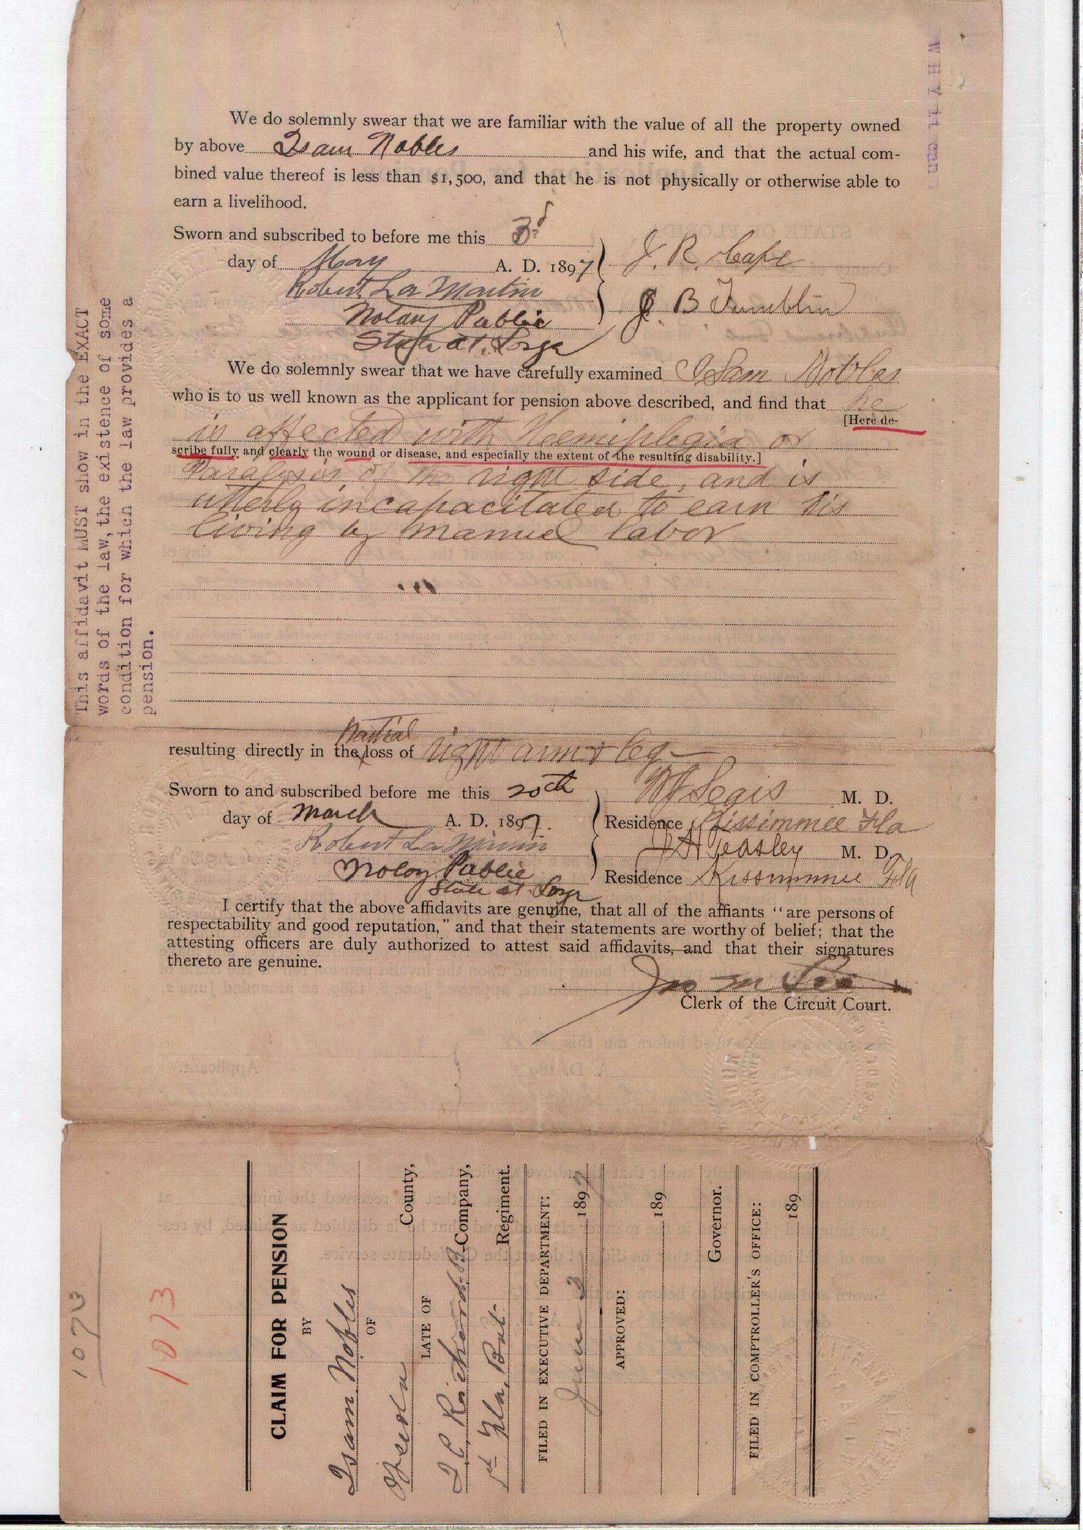 WHY it can
We do solemnly swear that we are familiar with the value of all the property owned
by above Isam Nobles and his wife, and that the actual com-
bined value thereof is less than $1,500, and that he is not physically or otherwise able to
earn a livelihood.
Sworn and subscribed to before me this 3d
day of May A. D. 1897
J. R. Cape
Robert La Martin
J B Tumblin
Notary Public
State at Large
We do solemnly swear that we have carefully examined Isam Nobles
who is to us well known as the applicant for pension above described, and find that he
[Here de-
is affected with Hemiplegia or
scribe fully and clearly the wound or disease, and especially the extent of the resulting disability.]
Paralysis of the right side, and is
utterly incapacitated to earn his
living by manuel labor
This affidavit MUST show in the EXACT
words of the law, the existence of some
condition for which the law provides a
pension.
Partial
resulting directly in the loss of right arm & leg
Sworn to and subscribed before me this 20th
M. D.
day of March A. D. 1897.
Residence Kissimmee Fla
Robert La Martin
Easley M. D.
Notary Public
Residence Kissimmee Fla
State at Large
I certify that the above affidavits are genuine, that all of the affiants "are persons of
respectability and good reputation," and that their statements are worthy of belief; that the
attesting officers are duly authorized to attest said affidavits, and that their signatures
thereto are genuine.
Jno M Lee
Clerk of the Circuit Court.
1073
1073
CLAIM FOR PENSION
BY
Isam Nobles
OF
Osceola County,
LATE OF
Company,
1st Fla. Bat. Regiment.
FILED IN EXECUTIVE DEPARTMENT:
June 3 1897
APPROVED:
189
Governor.
FILED IN COMPTROLLER'S OFFICE:
189